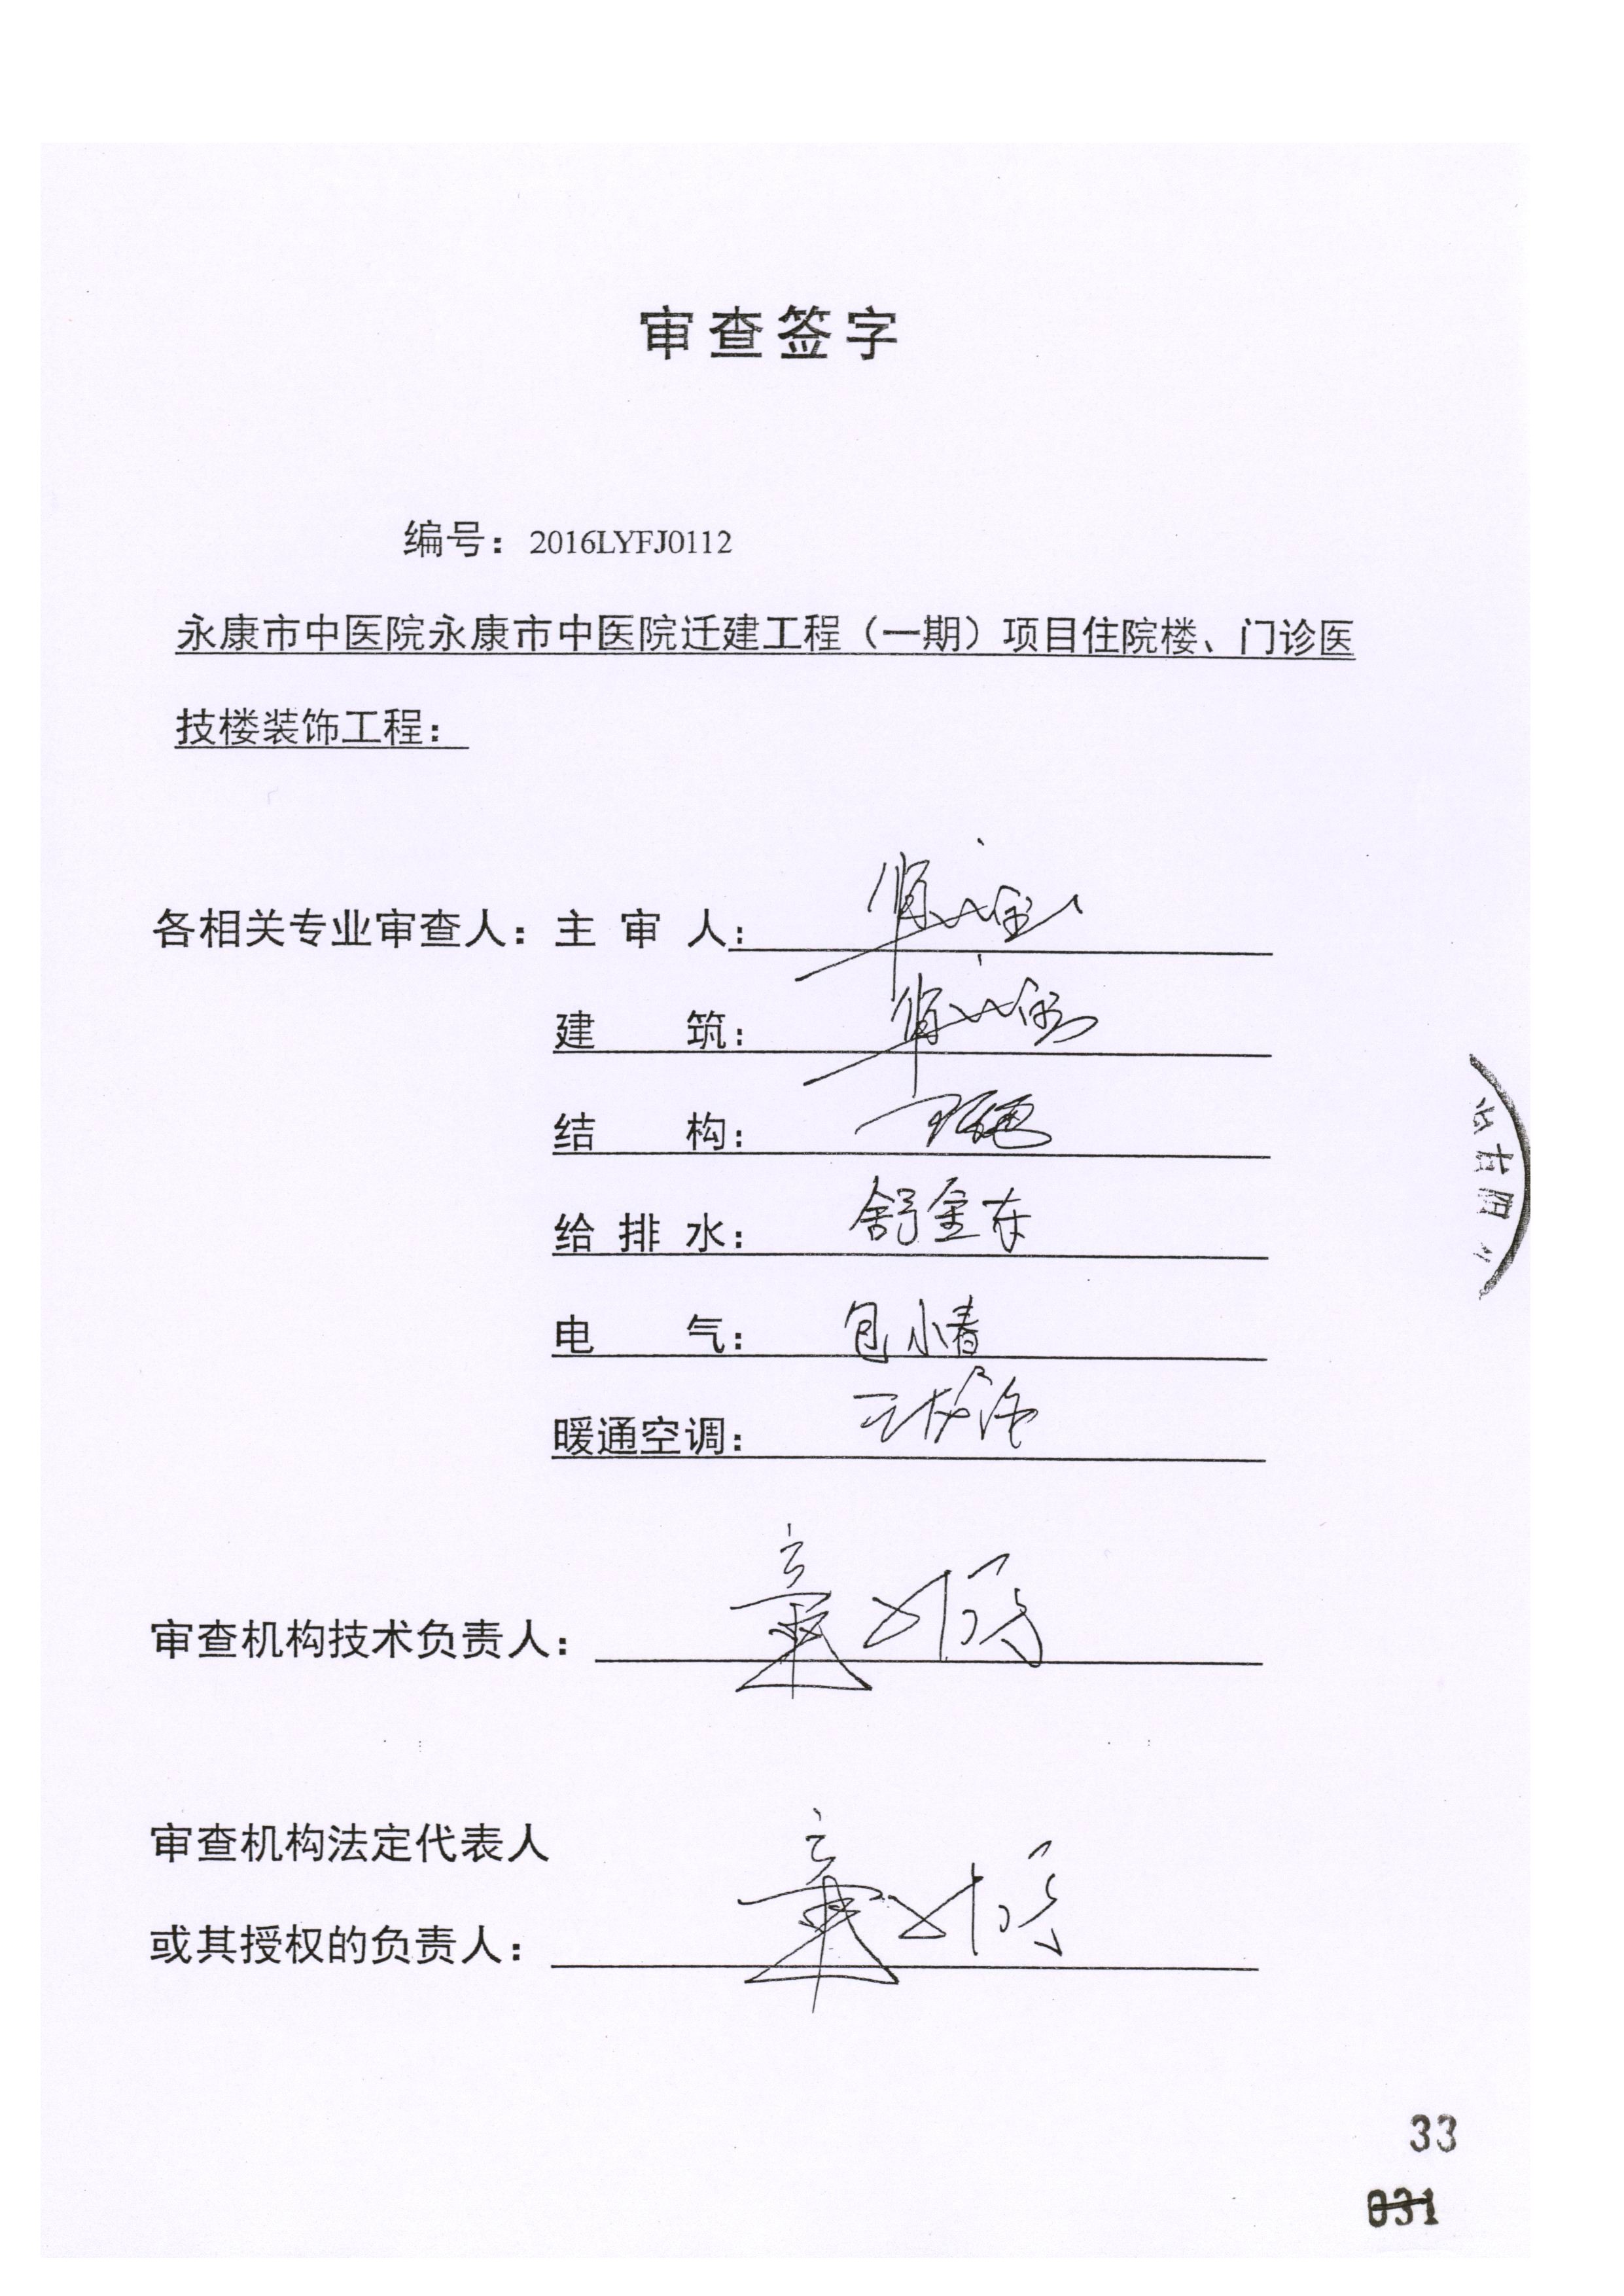 审查签字
编号：2016LYFJ0112
永康市中医院永康市中医院迁建工程（一期）项目住院楼、门诊医
技楼装饰工程：
各相关专业审查人：主 审 人：
建 筑：
结 构：
给 排 水：舒金东
电 气：包小春
暖通空调：
审查机构技术负责人：
审查机构法定代表人
或其授权的负责人：
33
031